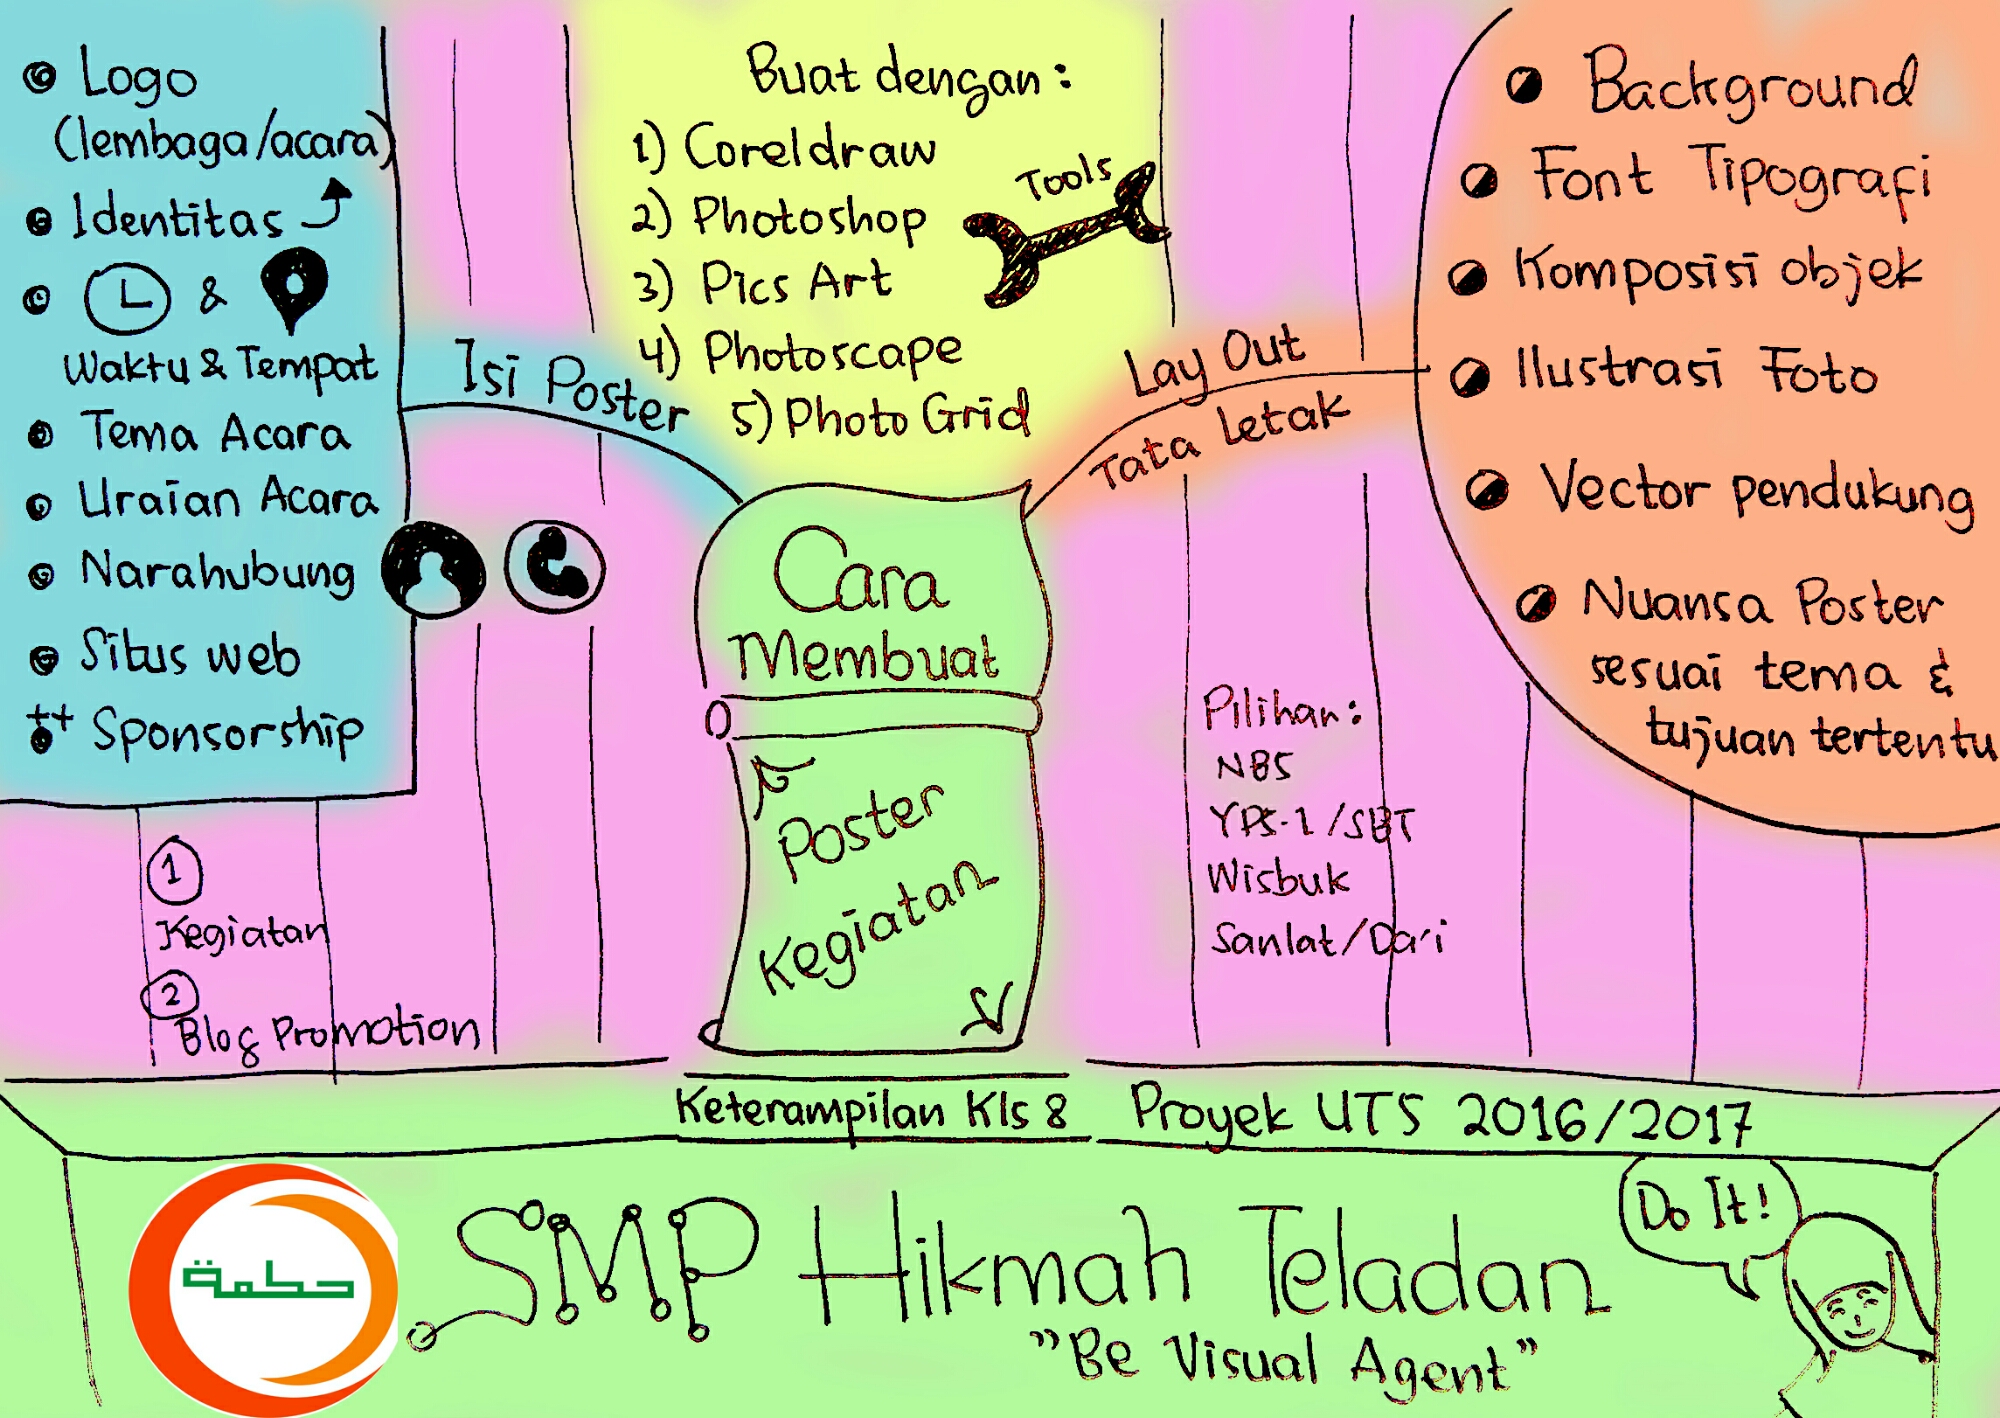 Logo
(lembaga/acara)
Identitas
&
Waktu & Tempat
Tema Acara
Uraian Acara
Narahubung
Situs web
++ Sponsorship
Isi Poster
Buat dengan:
1) Coreldraw
2) Photoshop
3) Pics Art
4) Photoscape
5) Photo Grid
Tools
Lay Out
Tata letak
Background
Font Tipografi
Komposisi objek
Ilustrasi Foto
Vector pendukung
Nuansa Poster
sesuai tema &
tujuan tertentu
Cara
Membuat
Poster
Kegiatan
1
Kegiatan
2
Blog Promotion
Pilihan:
NBS
YPS-1/SBT
Wisbuk
Sanlat/Da'i
Keterampilan Kls 8
Proyek UTS 2016/2017
حكمة
SMP Hikmah Teladan
"Be Visual Agent"
Do It!